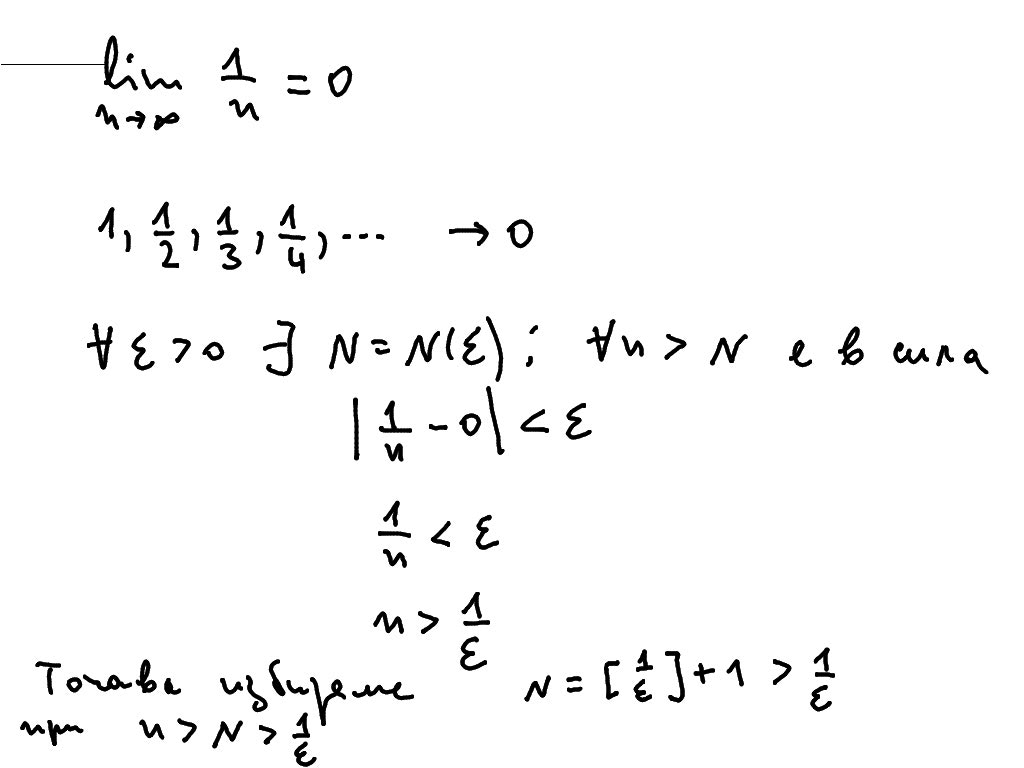 lim 1/n = 0
n→∞
1, 1/2, 1/3, 1/4, ... → 0
∀ ε > 0 ∃ N = N(ε) : ∀n > N е в сила
|1/n - 0| < ε
1/n < ε
n > 1/ε
Тогава избираме N = [1/ε] + 1 > 1/ε
при n > N > 1/ε